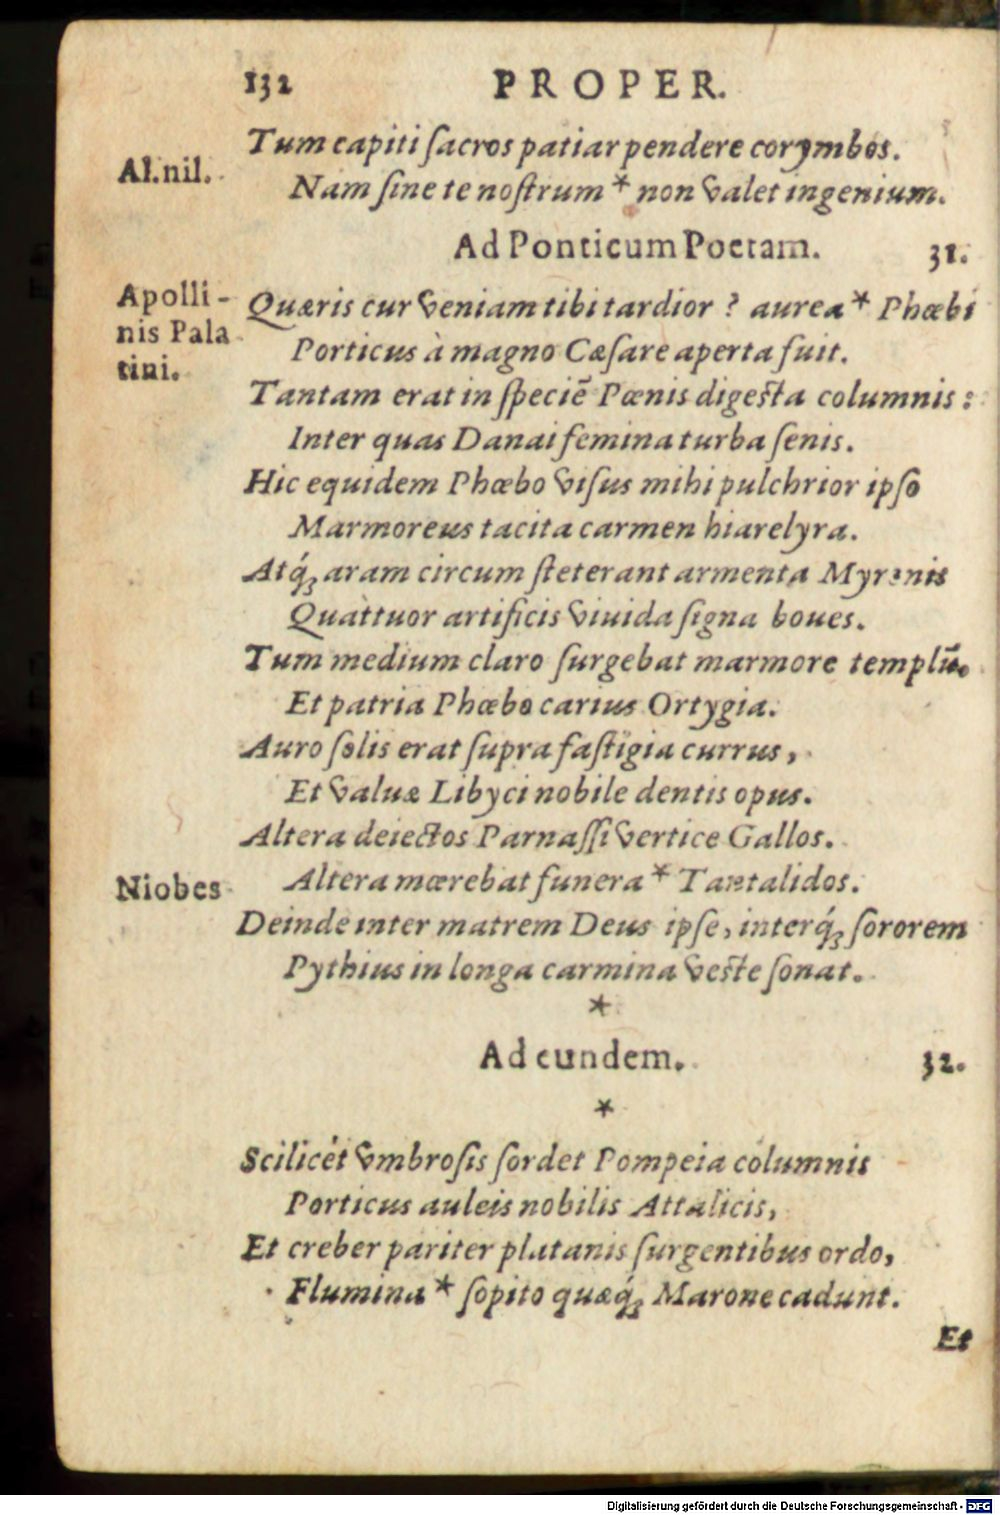 132 PROPER.
Tum capiti ſacros patiar pendere corymbos.
Al. nil. Nam ſine te noſtrum * non valet ingenium.
Ad Ponticum Poetam. 31.
Apolli-
nis Pala
tini.
Quæris cur veniam tibi tardior ? aurea * Phœbi
Porticus à magno Cæſare aperta fuit.
Tantam erat in ſpeciē Pœnis digeſta columnis :
Inter quas Danai femina turba ſenis.
Hic equidem Phœbo viſus mihi pulchrior ipſo
Marmoreus tacita carmen hiare lyra.
Atq́; aram circum ſteterant armenta Myronis
Quattuor artificis viuida ſigna boues.
Tum medium claro ſurgebat marmore templū.
Et patria Phœbo carius Ortygia.
Auro ſolis erat ſupra faſtigia currus,
Et valuæ Libyci nobile dentis opus.
Altera deiectos Parnaſſi vertice Gallos.
Niobes Altera mœrebat funera * Tantalidos.
Deinde inter matrem Deus ipſe, interq́; ſororem
Pythius in longa carmina veſte ſonat.
*
Ad eundem. 32.
*
Scilicét vmbroſis ſordet Pompeia columnis
Porticus auleis nobilis Attalicis,
Et creber pariter platanis ſurgentibus ordo,
Flumina * ſopito quæq́; Marone cadunt.
Et
Digitalisierung gefördert durch die Deutsche Forschungsgemeinschaft - DFG